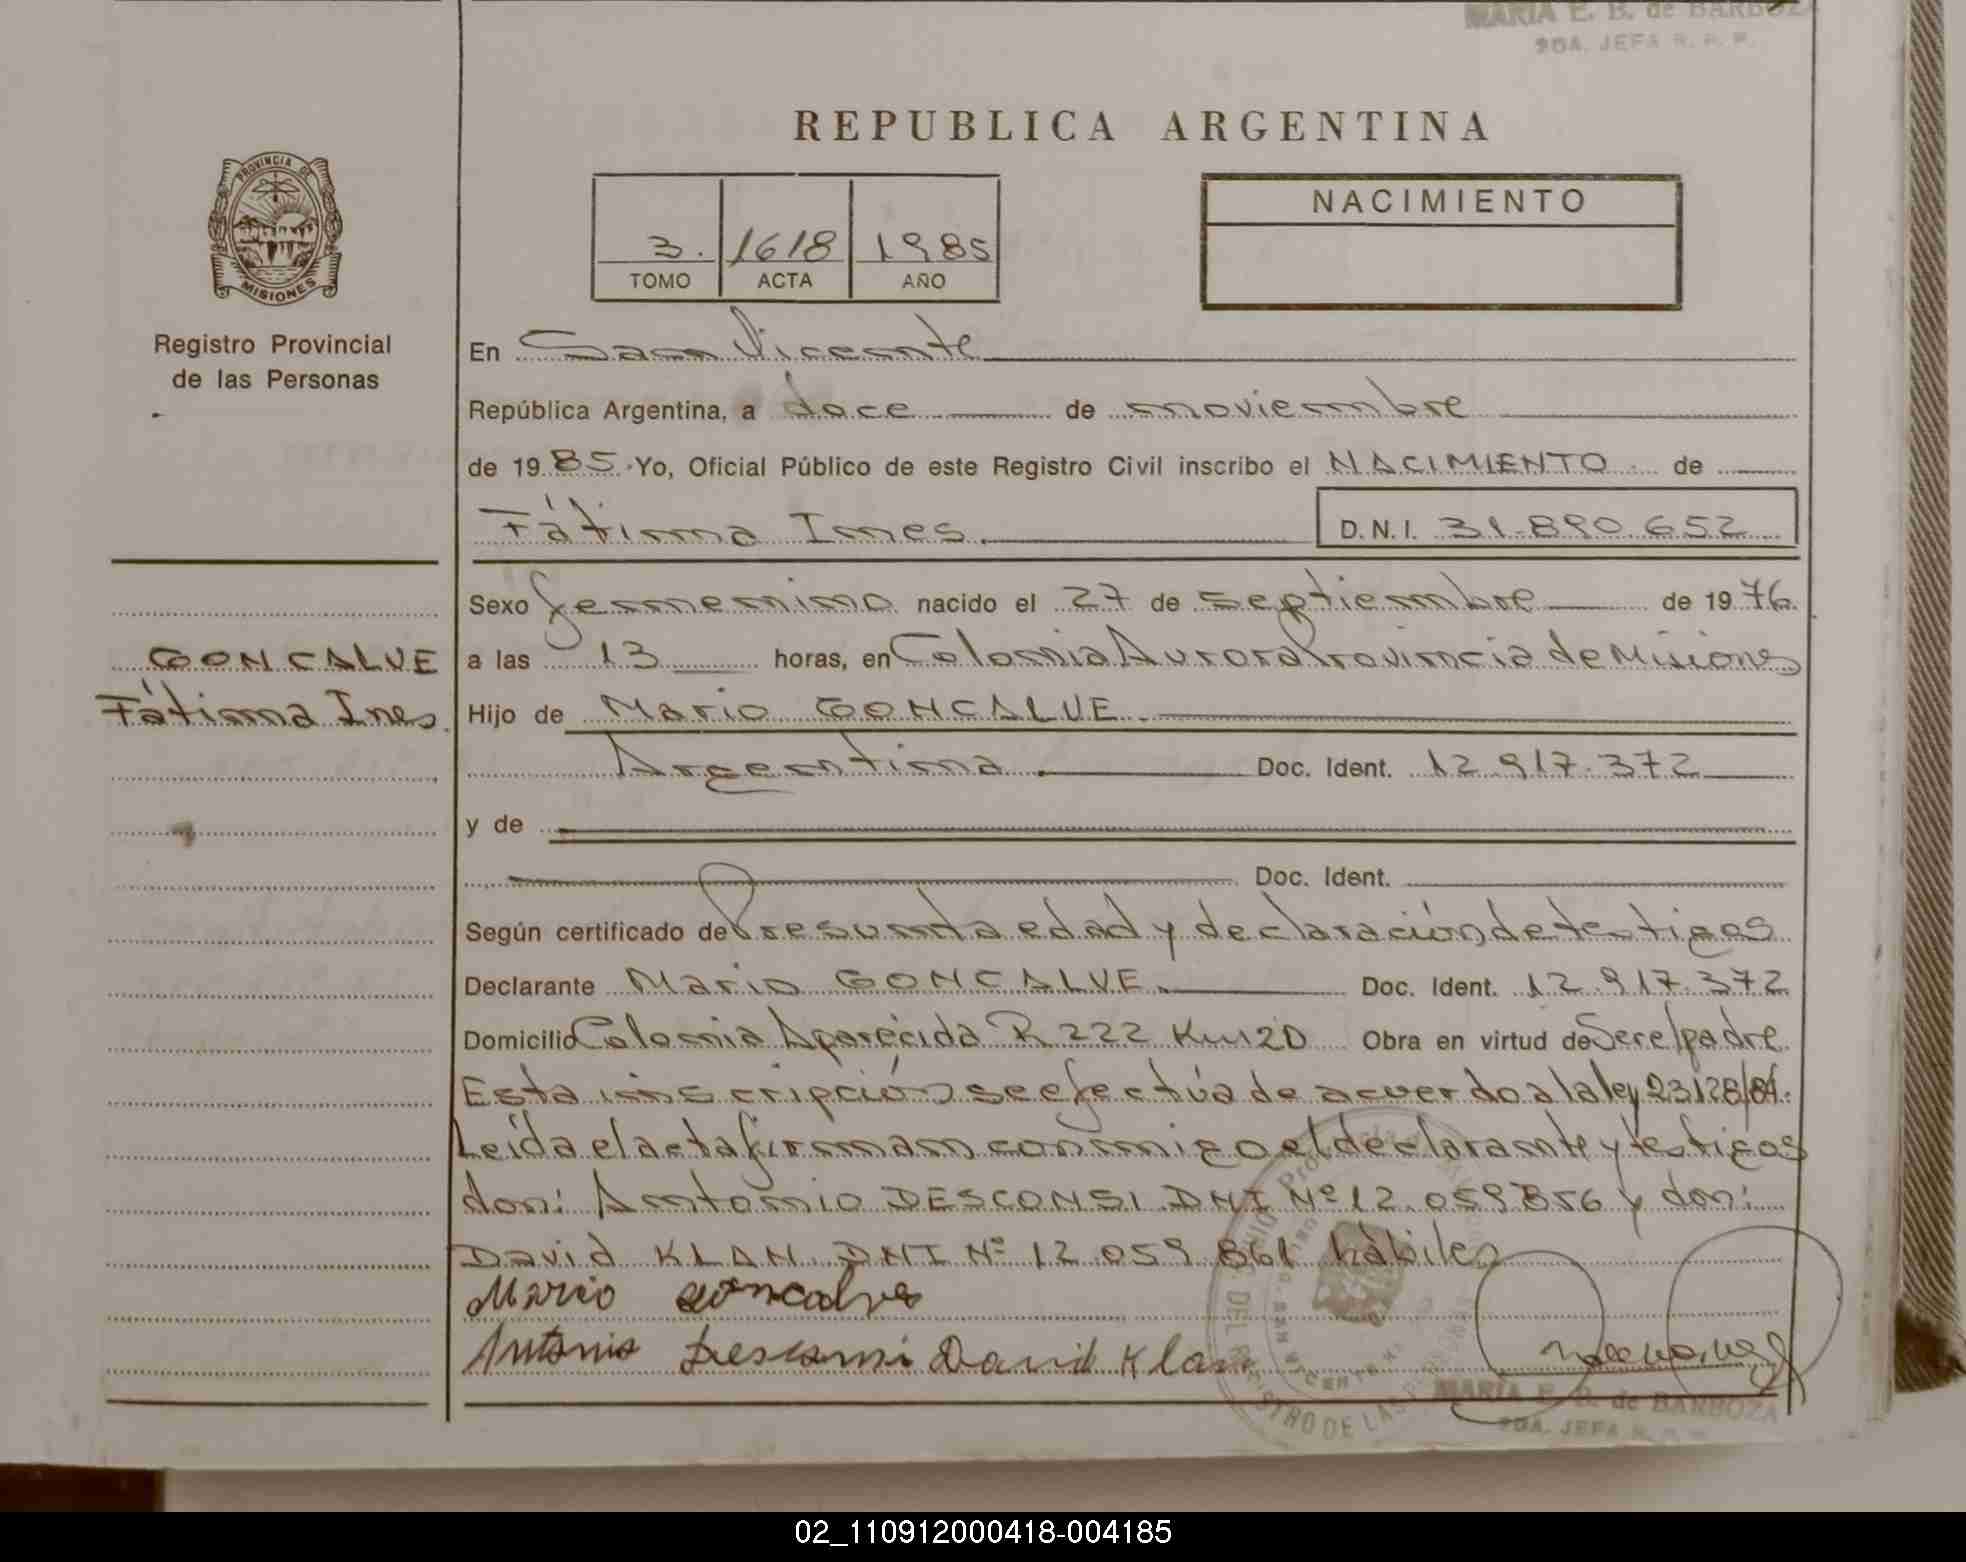 MARIA E. B. de BARBOZA
2DA. JEFA R. P. P.
REPUBLICA ARGENTINA
PROVINCIA DE
MISIONES
Registro Provincial
de las Personas
3. 1618 1985
TOMO ACTA AÑO
NACIMIENTO
En San Vicente
República Argentina, a doce de noviembre
de 1985 Yo, Oficial Público de este Registro Civil inscribo el NACIMIENTO de
Fátima Ines. D.N.I. 31.890.652
Sexo femenino nacido el 27 de septiembre de 1976.
GONCALVE
Fátima Ines.
a las 13 horas, en Colonia Aurora Provincia de Misiones
Hijo de Mario GONCALVE.
Argentina. Doc. Ident. 12.917.372
y de
Doc. Ident.
Según certificado de Presunta edad y declaración de testigos
Declarante Mario GONCALVE. Doc. Ident. 12.917.372
Domicilio Colonia Aparécida R 222 Km 20 Obra en virtud de Ser el padre.
Esta inscripción se efectúa de acuerdo a la ley 23128/84.
Leída el acta firman conmigo el declarante y testigos
don: Antonio DESCONSI DNI Nº 12.059856 y don:
David KLAN DNI Nº 12.059.861 hábiles
Mario Goncalves
Antonio Desconsi David Klan
MARIA E. B. de BARBOZA
2DA. JEFA R. P. P.
02_110912000418-004185